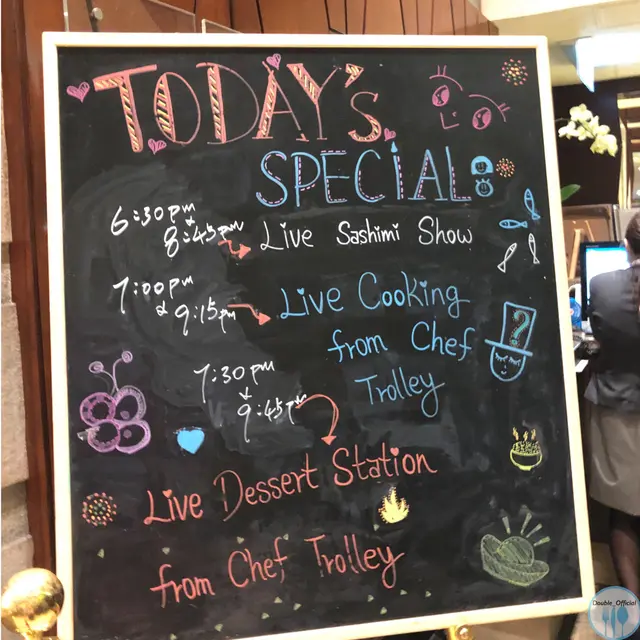 TODAY's
SPECIAL
6:30pm
& 8:45pm
Live Sashimi Show
7:00pm
& 9:15pm
Live Cooking
from Chef
Trolley
7:30pm
& 9:45pm
Live Dessert Station
from Chef Trolley
?
Double_Official